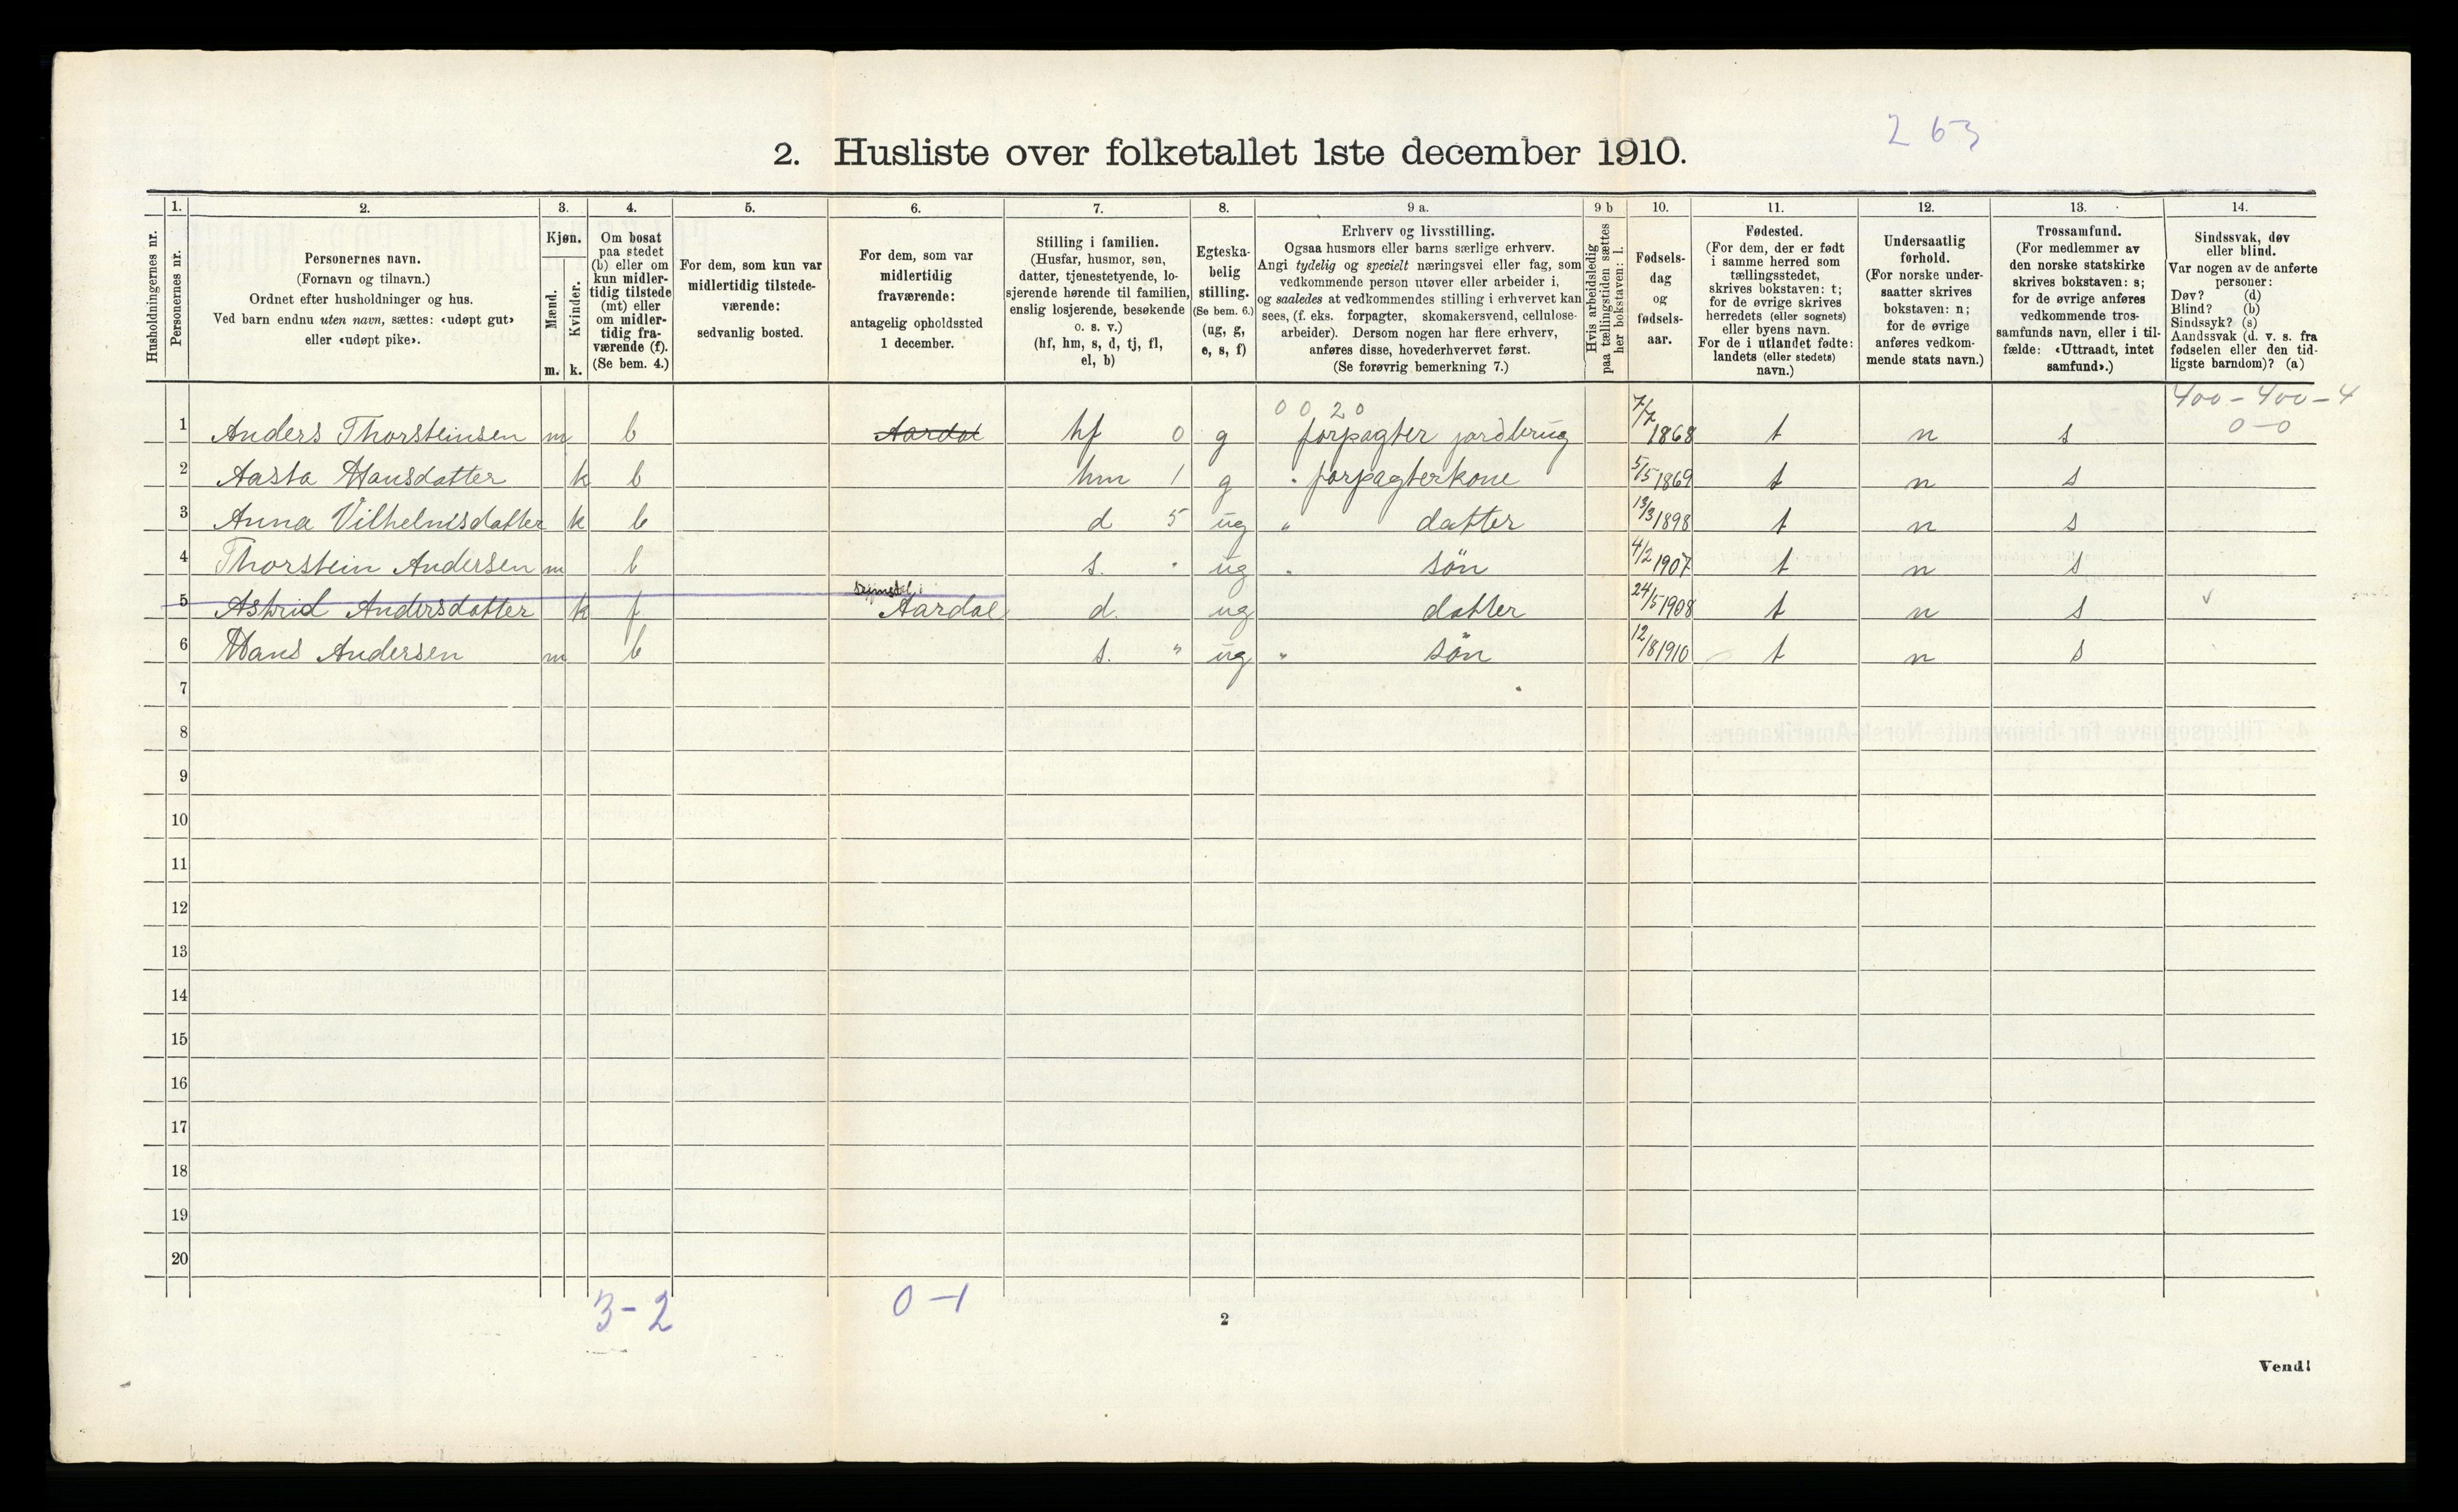 263
2. Husliste over folketallet 1ste december 1910.
Husholdningernes nr.
1. Personernes nr.
2. Personernes navn.
(Fornavn og tilnavn.)
Ordnet efter husholdninger og hus.
Ved barn endnu uten navn, sættes: «udøpt gut»
eller «udøpt pike».
3. Kjøn.
Mænd. m.
Kvinder. k.
4. Om bosat
paa stedet
(b) eller om
kun midler-
tidig tilstede
(mt) eller
om midler-
tidig fra-
værende (f).
(Se bem. 4.)
5. For dem, som kun var
midlertidig tilstede-
værende:
sedvanlig bosted.
6. For dem, som var
midlertidig
fraværende:
antagelig opholdssted
1 december.
7. Stilling i familien.
(Husfar, husmor, søn,
datter, tjenestetyende, lo-
sjerende hørende til familien,
enslig losjerende, besøkende
o. s. v.)
(hf, hm, s, d, tj, fl,
el, b)
8. Egteska-
belig
stilling.
(Se bem. 6.)
(ug, g,
e, s, f)
9 a. Erhverv og livsstilling.
Ogsaa husmors eller barns særlige erhverv.
Angi tydelig og specielt næringsvei eller fag, som
vedkommende person utøver eller arbeider i,
og saaledes at vedkommendes stilling i erhvervet kan
sees, (f. eks. forpagter, skomakersvend, cellulose-
arbeider). Dersom nogen har flere erhverv,
anføres disse, hovederhvervet først.
(Se forøvrig bemerkning 7.)
9 b Hvis arbeidsledig
paa tællingstiden sættes
her bokstaven: l.
10. Fødsels-
dag
og
fødsels-
aar.
11. Fødested.
(For dem, der er født
i samme herred som
tællingsstedet,
skrives bokstaven: t;
for de øvrige skrives
herredets (eller sognets)
eller byens navn.
For de i utlandet fødte:
landets (eller stedets)
navn.)
12. Undersaatlig
forhold.
(For norske under-
saatter skrives
bokstaven: n;
for de øvrige
anføres vedkom-
mende stats navn.)
13. Trossamfund.
(For medlemmer av
den norske statskirke
skrives bokstaven: s;
for de øvrige anføres
vedkommende tros-
samfunds navn, eller i til-
fælde: «Uttraadt, intet
samfund».)
14. Sindssvak, døv
eller blind.
Var nogen av de anførte
personer:
Døv? (d)
Blind? (b)
Sindssyk? (s)
Aandssvak (d. v. s. fra
fødselen eller den tid-
ligste barndom)? (a)
0 0 2 0 400-400-4
1 Anders Thorsteinsen m b Aardal hf 0 g forpagter jordbrug 7/7 1868 t n s 0-0
2 Aasta Hansdatter k b hm 1 g " forpagterkone 5/5 1869 t n s
3 Anna Vilhelmsdatter k b d 5 ug " datter 13/3 1898 t n s
4 Thorstein Andersen m b s. " ug " sön 4/2 1907 t n s
5 Astrid Andersdatter k f Aardal d. ug datter 24/5 1908 t n s
6 Hans Andersen m b s. " ug " sön 12/8 1910 t n s
7
8
9
10
11
12
13
14
15
16
17
18
19
20
3-2 0-1
2
Vend!